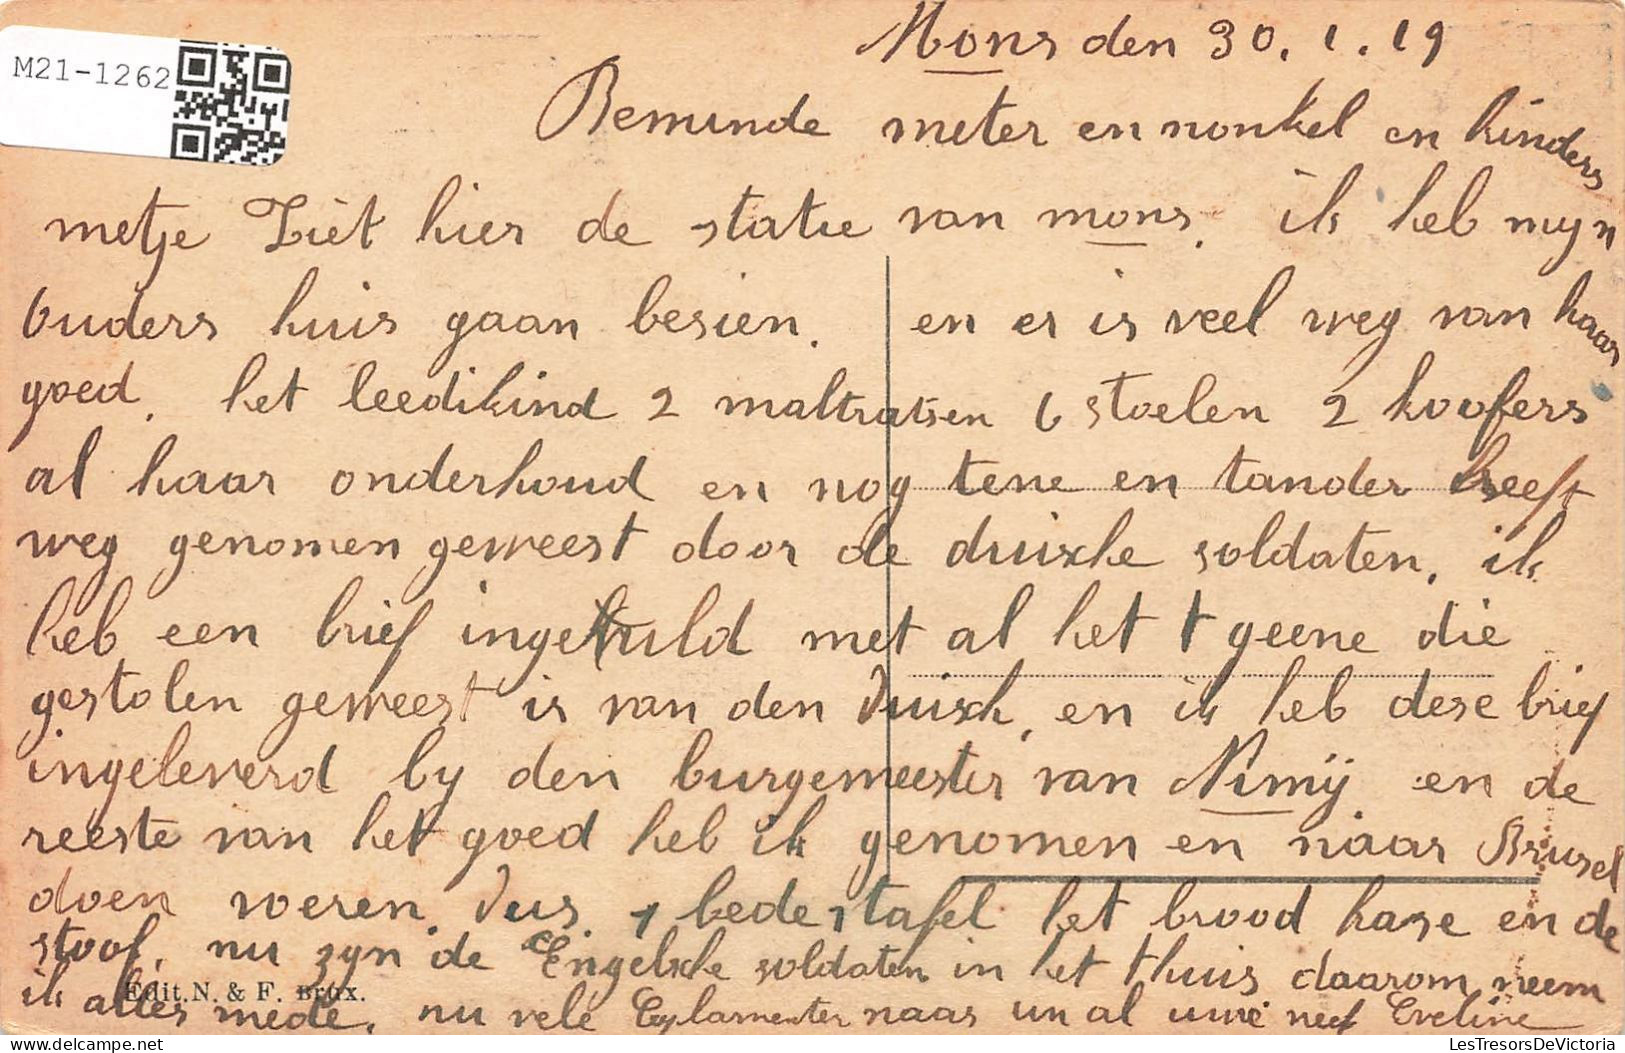 M21-1262
Mons den 30.1.19
Beminde meter en nonkel en kinders
metje Ziet hier de statie van mons. ik heb myn
ouders huis gaan besien. en er is veel weg van haar
goed. het leedikind 2 maltratsen 6 stoelen 2 koofers
al haar onderhoud en nog tene en tander heeft
weg genomen geweest door de duische soldaten. ik
heb een brief ingevuld met al het t geene die
gestolen geweest is van den duisch, en ik heb dese brief
ingeleverd by den burgemeester van Nimÿ en de
reeste van het goed heb ik genomen en naar Brusel
doen voeren. dus. 1 bede 1 tafel het brood kase en de
stoof. nu zyn de Engelsche soldaten in het thuis daarom neem
ik alles mede. nu vele Coplamenter naar un al uwe neef Eveline
Edit. N. & F. Brux.
LesTresorsDeVictoria
delcampe.net